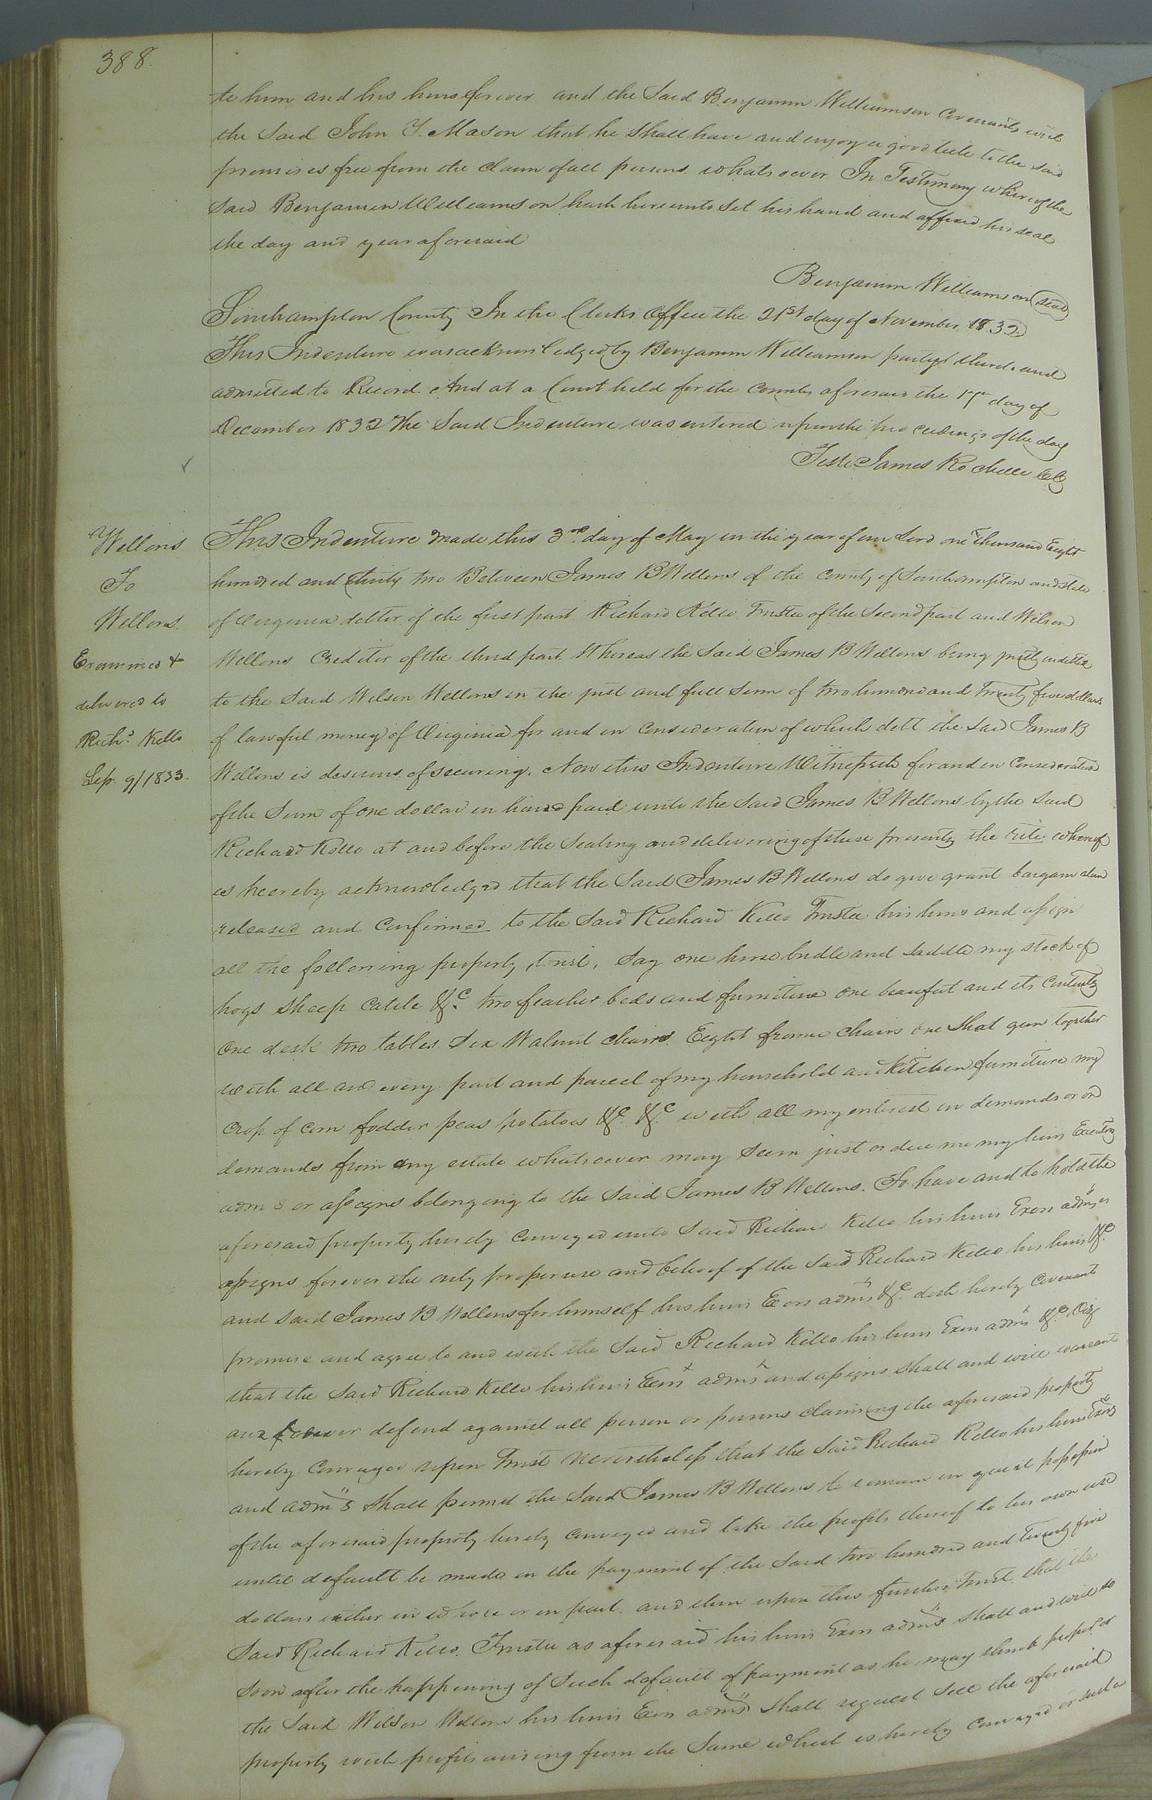 388.
to him and his heirs forever and the Said Benjamin Williamson Covenants with
the Said John Y. Mason that he Shall have and enjoy a good title to the said
premises free from the claim of all persons whatsoever In Testimony whereof the
Said Benjamin Williamson hath hereunto Set his hand and affixed his seal
the day and year aforesaid
Benjamin Williamson seal
Southampton County In the Clerks Office the 21st day of November 1832
This Indenture was acknowledged by Benjamin Williamson party thereto and
admitted to Record And at a Court held for the County aforesaid the 17th day of
December 1832 The Said Indenture was entered upon the proceedings of the day
Teste James Rochelle
Wellons
To
Wellons
Examined &
delivered to
Richd. Kello
Sep. 9/1833.
This Indenture made this 3rd day of May in the year of our Lord one Thousand Eight
hundred and thirty two Between James B Wellons of the County of Southampton and State
of Virginia debtor of the first part Richard Kello Trustee of the Second part and Wilson
Wellons Creditor of the third part Whereas the Said James B Wellons being justly indebted
to the Said Wilson Wellons in the just and full Sum of two hundred and Twenty five dollars
of lawful money of Virginia for and in Consideration of which debt the Said James B
Wellons is desirous of securing. Now this Indenture Witnesseth for and in Consideration
of the Sum of one dollar in hand paid unto the Said James B Wellons by the Said
Richard Kello at and before the Sealing and delivering of these presents the whereof
is hereby acknowledged that the Said James B Wellons do give grant bargain
released and Confirmed to the Said Richard Kello Trustee his heirs and assigns
all the following property, Say one horse bridle and Saddle my stock of
hogs Sheep Cattle &c. two feather beds and furniture one beaufat and its Contents
one desk two tables Six Walnut chairs Eight frame chairs one Shot gun together
with all and every part and parcel of my household and Kitchen furniture my
Crop of Corn fodder peas potatoes &c &c with all my interest in demands or on
demands from any estate whatsoever may Seem just or due me my heirs Executors
adms or assigns belonging to the Said James B Wellons. To have and to hold the
aforesaid property hereby Conveyed unto Said Richard Kello his heirs Exors adms or
assigns forever the only proper use and behoof of the Said Richard Kello his heirs &c.
and Said James B Wellons for himself his heirs Exors adms &c. doth hereby Covenant
promise and agree to and with the Said Richard Kello his heirs Exors adms &c. Viz
that the Said Richard Kello his heirs Exors adms and assigns Shall and will warrant
and forever defend against all person or persons claiming the aforesaid property
hereby Conveyed upon Trust Nevertheless that the Said Richard Kello his heirs Exors
and adms Shall permit the Said James B Wellons to remain in quiet possession
of the aforesaid property hereby Conveyed and take the profits thereof to his own use
until default be made in the payment of the Said two hundred and twenty five
dollars either in whole or in part. and then upon this further Trust that the
Said Richard Kello. Trustee as aforesaid his heirs Exors adms Shall and will So
Soon after the happening of Such default of payment as he may think proper or
the Said Wilson Wellons his heirs Exors adms Shall request Sell the aforesaid
property with profits arising from the Same which is hereby Conveyed or Such